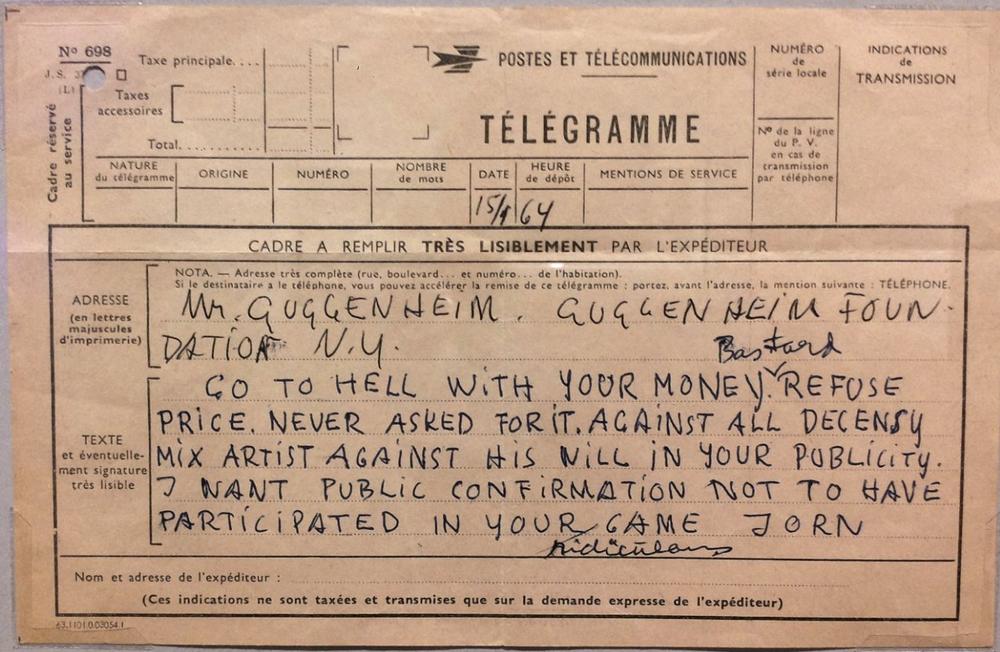 Nº 698
J. S.
(L)
Cadre réservé
au service
Taxe principale. . . .
Taxes
accessoires
Total.
POSTES ET TÉLÉCOMMUNICATIONS
TÉLÉGRAMME
NUMÉRO
de
série locale
INDICATIONS
de
TRANSMISSION
Nº de la ligne
du P. V.
en cas de
transmission
par téléphone
NATURE
du télégramme
ORIGINE
NUMÉRO
NOMBRE
de mots
DATE
HEURE
de dépôt
MENTIONS DE SERVICE
15/1 64
CADRE A REMPLIR TRÈS LISIBLEMENT PAR L'EXPÉDITEUR
ADRESSE
(en lettres
majuscules
d'imprimerie)
NOTA. — Adresse très complète (rue, boulevard... et numéro... de l'habitation).
Si le destinataire a le téléphone, vous pouvez accélérer la remise de ce télégramme : portez, avant l'adresse, la mention suivante : TÉLÉPHONE.
Mr. GUGGENHEIM. GUGGENHEIM FOUN-
DATION N.Y.
TEXTE
et éventuelle-
ment signature
très lisible
Bastard
GO TO HELL WITH YOUR MONEY. REFUSE
PRICE. NEVER ASKED FOR IT. AGAINST ALL DECENSY
MIX ARTIST AGAINST HIS WILL IN YOUR PUBLICITY.
I WANT PUBLIC CONFIRMATION NOT TO HAVE
PARTICIPATED IN YOUR GAME JORN
ridiculous
Nom et adresse de l'expéditeur :
(Ces indications ne sont taxées et transmises que sur la demande expresse de l'expéditeur)
63.1101.0.03054.1